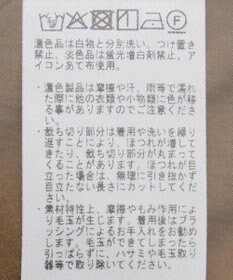 濃色品は白物と分別洗い。つけ置き
禁止。淡色品は蛍光増白剤禁止。ア
イロンあて布使用。
・濃色製品は摩擦や汗、雨等で濡れ
た際に他の衣類や小物類に色が移
る事がありますのでご注意くださ
い。
・裁ち切り部分は着用や洗いを繰り
返すことにより、ほつれが増して
きたり、裁ち切り部分が丸まって
くることがあります。ほつれが目
立った場合は、無理に引き抜かず
目立たない長さにカットしてくだ
さい。
・素材特性上、摩擦やもみ作用によ
り毛玉が生じます。着用後はブラ
ッシングによるお手入れをお勧め
します。毛玉ができてしまったら
引っぱらずに、ハサミや毛玉取り
器等で取り除いてください。